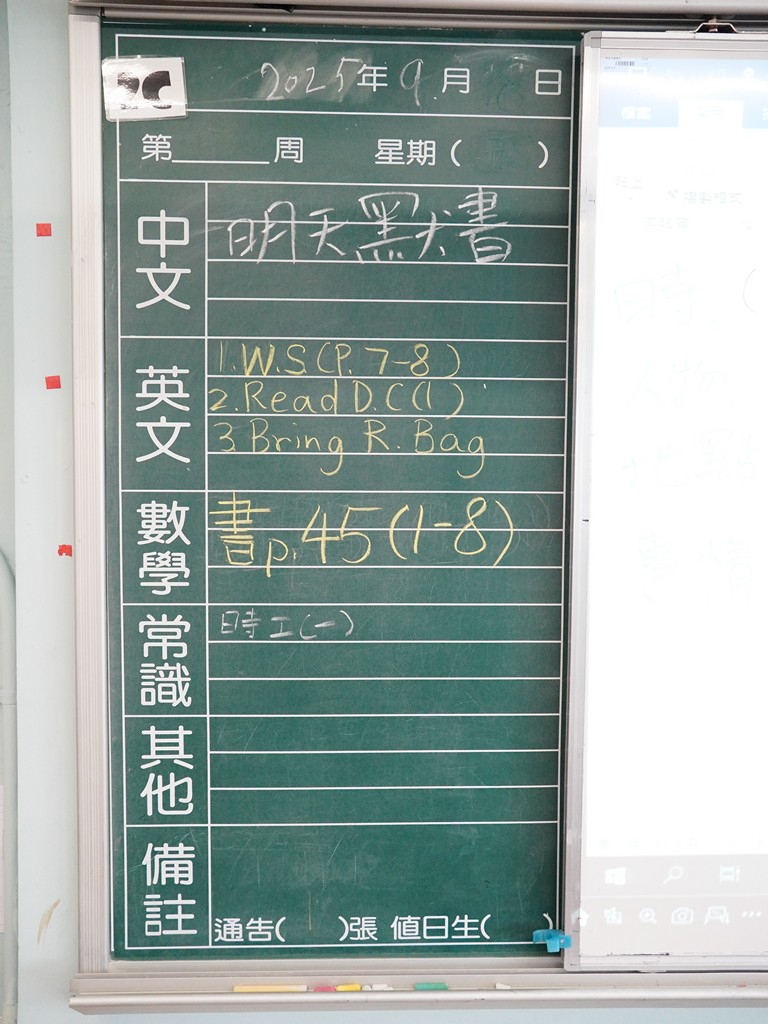 2C
2025年9月 日
第 周 星期( )
中文
明天默書
英文
1. W.S (P. 7-8)
2. Read D.C (1)
3. Bring R. Bag
數學
書p. 45 (1-8)
常識
時工(一)
其他
備註
通告( )張 值日生( )